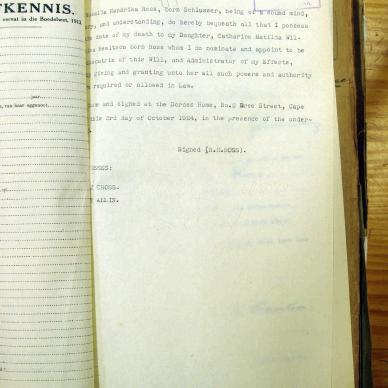 TKENNIS.
vervat in die Boedelwet, 1913
jaar,
, van haar eggenoot
Hendrika Ross, born Schlusser, being of a sound mind,
ory, and understanding, do hereby bequeath all that I possess
the date of my death to my Daughter, Catharina Matilda Wil-
Neeltson born Ross whom I do nominate and appoint to be
Executrix of this Will, and Administrator of my Effects,
by giving and granting unto her all such powers and authority
are required or allowed in Law.
Done and signed at the Dorcas Home, No.2 Rose Street, Cape
this 3rd day of October 1924, in the presence of the under-
Signed (R.H.ROSS).
ESSES:
CROSS.
ALLIN.